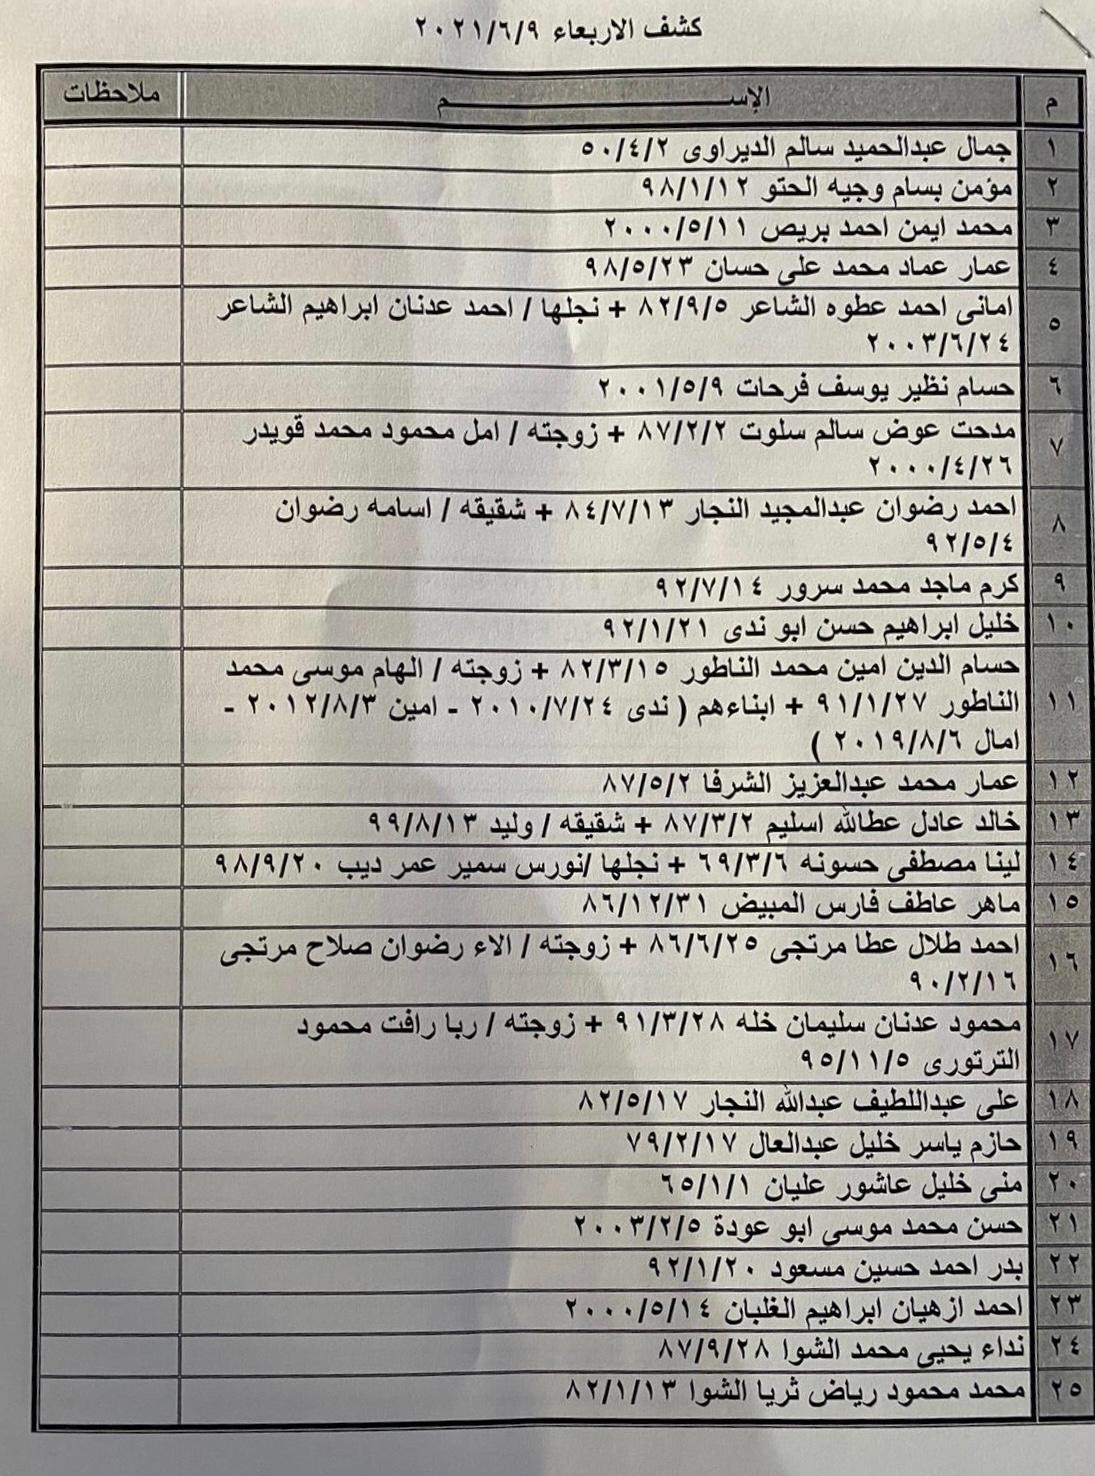 كشف الاربعاء ٢٠٢١/٦/٩
م الإســـــــــــم ملاحظات
١ جمال عبدالحميد سالم الديراوى ٥٠/٤/٢
٢ مؤمن بسام وجيه الحتو ٩٨/١/١٢
٣ محمد ايمن احمد بريص ٢٠٠٠/٥/١١
٤ عمار عماد محمد على حسان ٩٨/٥/٢٣
٥ امانى احمد عطوه الشاعر ٨٢/٩/٥ + نجلها / احمد عدنان ابراهيم الشاعر
٢٠٠٣/٦/٢٤
٦ حسام نظير يوسف فرحات ٢٠٠١/٥/٩
٧ مدحت عوض سالم سلوت ٨٧/٢/٢ + زوجته / امل محمود محمد قويدر
٢٠٠٠/٤/٢٦
٨ احمد رضوان عبدالمجيد النجار ٨٤/٧/١٣ + شقيقه / اسامه رضوان
٩٢/٥/٤
٩ كرم ماجد محمد سرور ٩٢/٧/١٤
١٠ خليل ابراهيم حسن ابو ندى ٩٢/١/٢١
١١ حسام الدين امين محمد الناطور ٨٢/٣/١٥ + زوجته / الهام موسى محمد
الناطور ٩١/١/٢٧ + ابناءهم ( ندى ٢٠١٠/٧/٢٤ - امين ٢٠١٢/٨/٣ -
امال ٢٠١٩/٨/٦ )
١٢ عمار محمد عبدالعزيز الشرفا ٨٧/٥/٢
١٣ خالد عادل عطالله اسليم ٨٧/٣/٢ + شقيقه / وليد ٩٩/٨/١٣
١٤ لينا مصطفى حسونه ٦٩/٣/٦ + نجلها /نورس سمير عمر ديب ٩٨/٩/٢٠
١٥ ماهر عاطف فارس المبيض ٨٦/١٢/٣١
١٦ احمد طلال عطا مرتجى ٨٦/٦/٢٥ + زوجته / الاء رضوان صلاح مرتجى
٩٠/٢/١٦
١٧ محمود عدنان سليمان خله ٩١/٣/٢٨ + زوجته / ربا رافت محمود
الترتورى ٩٥/١١/٥
١٨ على عبداللطيف عبدالله النجار ٨٢/٥/١٧
١٩ حازم ياسر خليل عبدالعال ٧٩/٢/١٧
٢٠ منى خليل عاشور عليان ٦٥/١/١
٢١ حسن محمد موسى ابو عودة ٢٠٠٣/٢/٥
٢٢ بدر احمد حسين مسعود ٩٢/١/٢٠
٢٣ احمد ازهيان ابراهيم الغلبان ٢٠٠٠/٥/١٤
٢٤ نداء يحيى محمد الشوا ٨٧/٩/٢٨
٢٥ محمد محمود رياض ثريا الشوا ٨٢/١/١٣